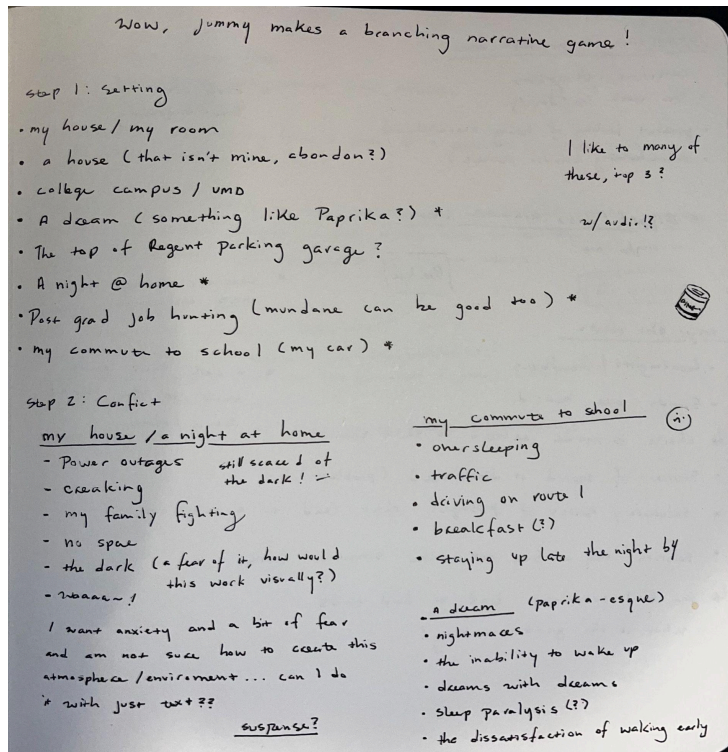 Wow, Jummy makes a branching narrative game!
Step 1: Setting
• my house / my room
• a house (that isn't mine, abandon?)
• college campus / UMD
• A dream (something like Paprika?) *
• The top of Regent parking garage?
• A night @ home *
• Post grad job hunting (mundane can be good too) *
• my commute to school (my car) *
I like to many of
these, top 3?
w/ audio!?
Step 2: Confict
my house / a night at home
- Power outages
still scared of
the dark!
- creaking
- my family fighting
- no space
- the dark (a fear of it, how would
this work visually?)
I want anxiety and a bit of fear
and am not sure how to create this
atmosphere / enviroment... can I do
it with just text??
suspense?
my commute to school
• oversleeping
• traffic
• driving on route 1
• breakfast (?)
• staying up late the night by
A dream (paprika-esque)
• nightmares
• the inability to wake up
• dreams with dreams
• sleep paralysis (?)
• the dissatisfaction of waking early